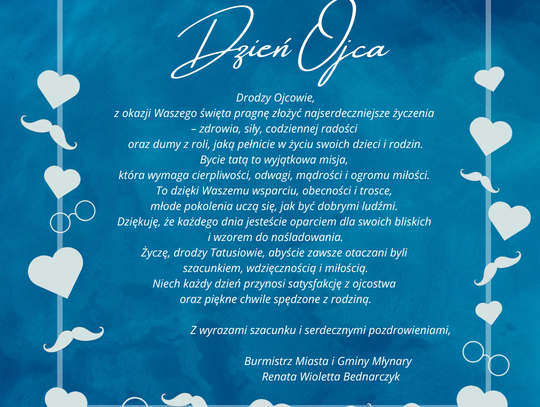 Dzień Ojca
Drodzy Ojcowie,
z okazji Waszego święta pragnę złożyć najserdeczniejsze życzenia
– zdrowia, siły, codziennej radości
oraz dumy z roli, jaką pełnicie w życiu swoich dzieci i rodzin.
Bycie tatą to wyjątkowa misja,
która wymaga cierpliwości, odwagi, mądrości i ogromu miłości.
To dzięki Waszemu wsparciu, obecności i trosce,
młode pokolenia uczą się, jak być dobrymi ludźmi.
Dziękuję, że każdego dnia jesteście oparciem dla swoich bliskich
i wzorem do naśladowania.
Życzę, drodzy Tatusiowie, abyście zawsze otaczani byli
szacunkiem, wdzięcznością i miłością.
Niech każdy dzień przynosi satysfakcję z ojcostwa
oraz piękne chwile spędzone z rodziną.
Z wyrazami szacunku i serdecznymi pozdrowieniami,
Burmistrz Miasta i Gminy Młynary
Renata Wioletta Bednarczyk